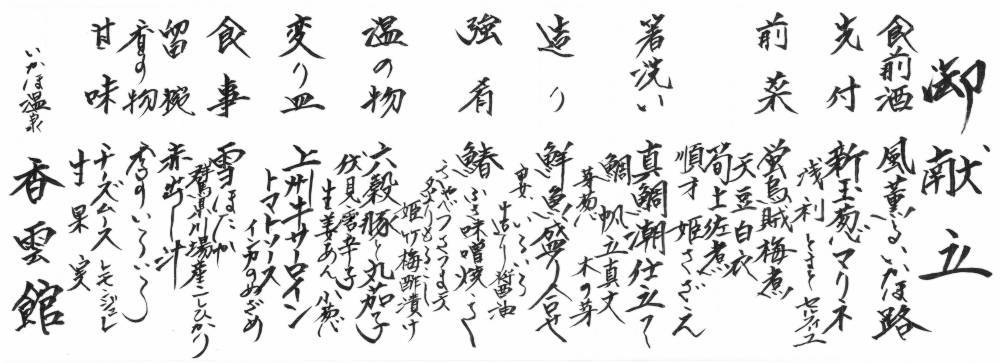 御献立
食前酒
風薫るいかほ路
先付
新玉葱マリネ
浅利 とまと セルフィユ
前菜
蛍烏賊梅煮
天豆白衣
筍土佐煮
順才 姫さざえ
箸洗い
真鯛潮仕立て
鯛 帆立真丈
芽葱 木の芽
造り
鮮魚盛り合せ
妻いろいろ
生造り醤油
強肴
鰆ふき味噌焼
さやべつさつま天
姫竹梅酢漬け
温の物
六穀豚と丸茄子
伏見唐辛子
生姜あん 小葱
変り皿
上州牛サーロイン
トマトソース
インカのめざめ
食事
雪ほたか
群馬県川場産こしひかり
留椀
赤出し汁
香の物
香のいろいろ
甘味
チーズムース レモンジュレ
果実
いかほ温泉
香雲館